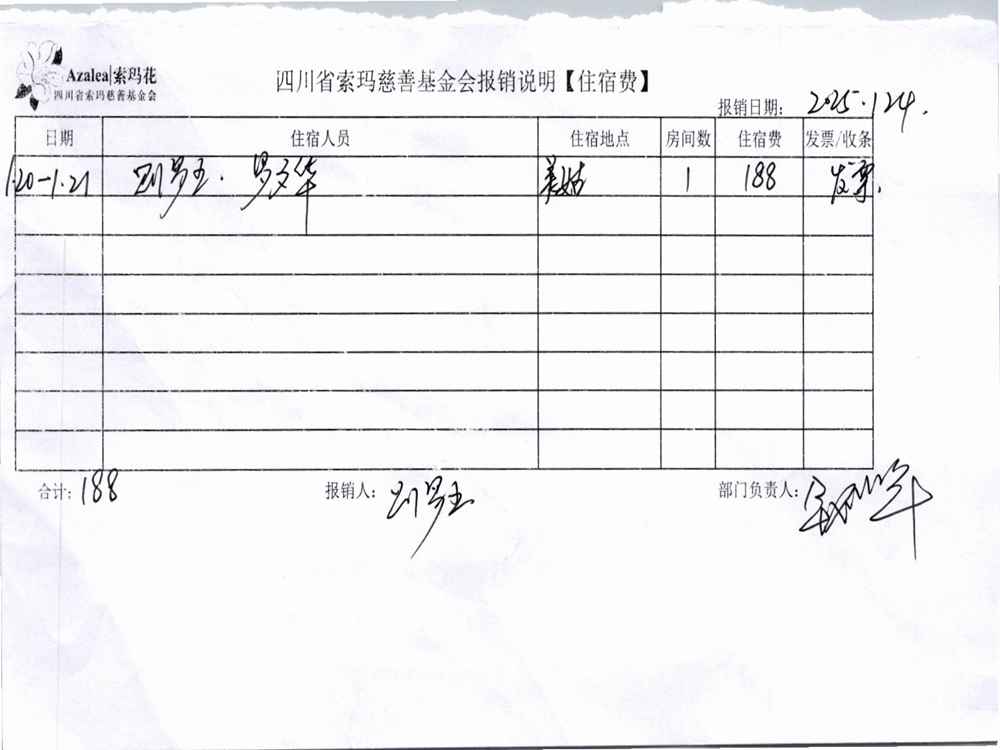 Azalea|索玛花
四川省索玛慈善基金会
四川省索玛慈善基金会报销说明【住宿费】
报销日期： 2025.1.24.
日期 住宿人员 住宿地点 房间数 住宿费 发票/收条
1.20-1.21 罗文华 美姑 1 188 发票.
合计：188 报销人： 部门负责人：